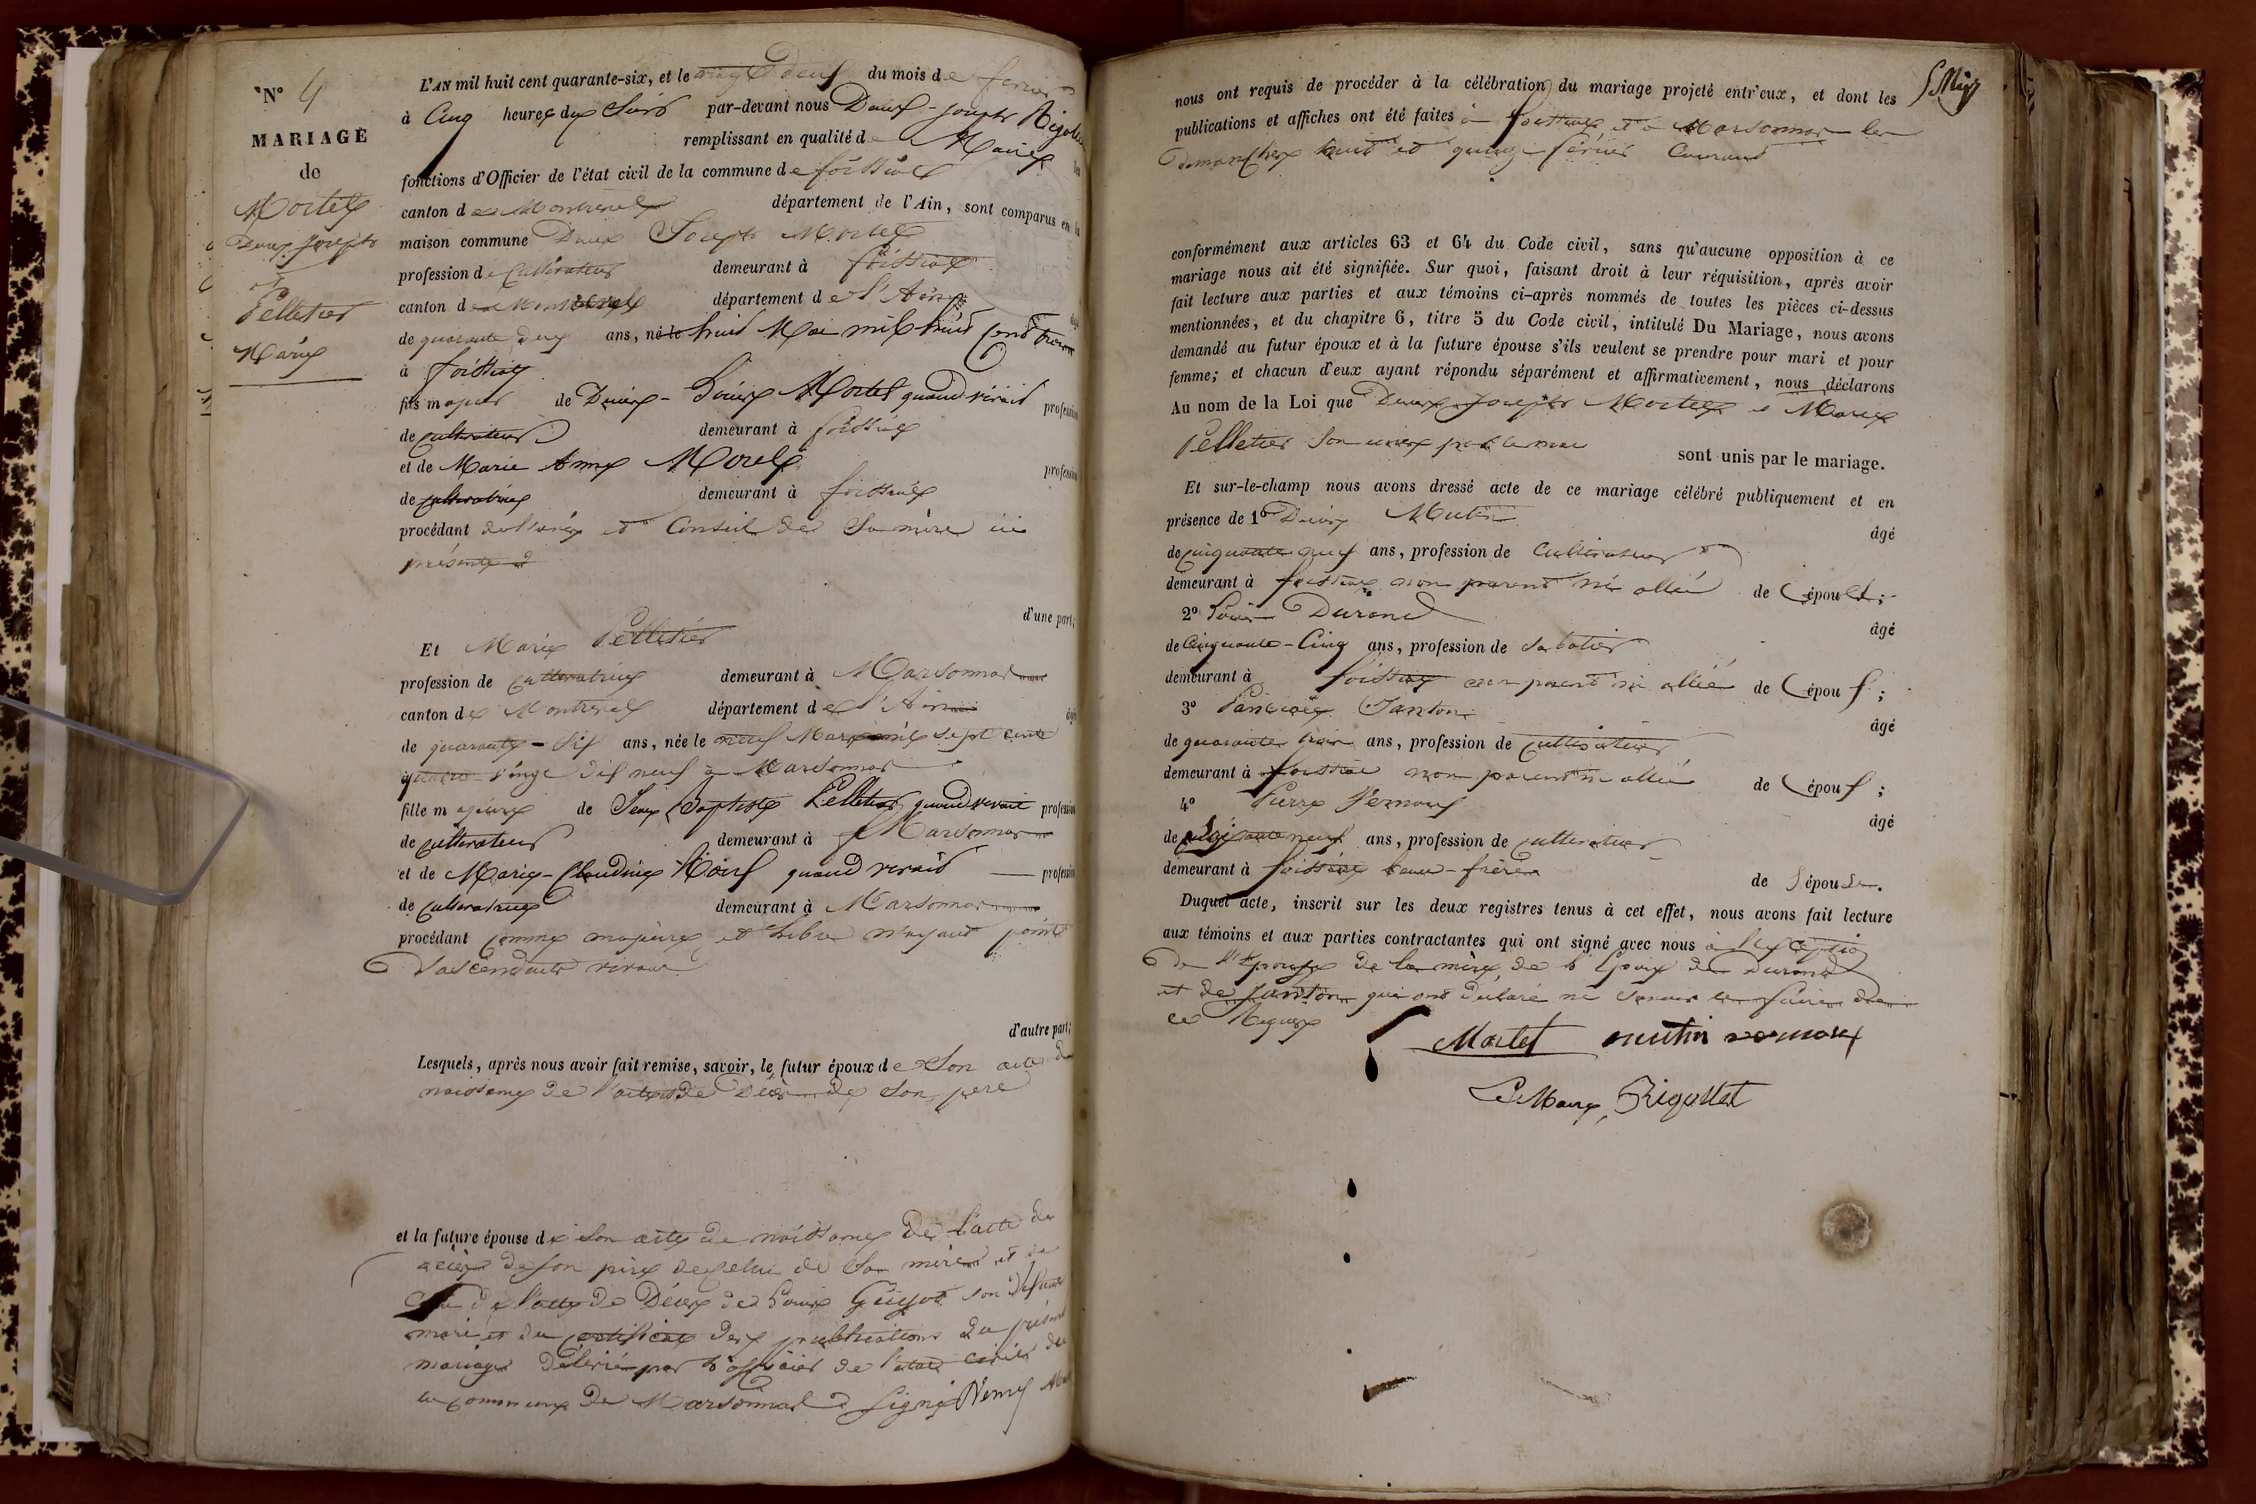 N° 4
MARIAGE
de
Mortel
Denis Joseph
et
Pelletier
Marie
L'AN mil huit cent quarante-six, et le vingt deux du mois de février
à Cinq heures du Soir par-devant nous Denis-Joseph Rigollet
remplissant en qualité de Maire les
fonctions d'Officier de l'état civil de la commune de foissiat
canton de Montrevel département de l'Ain, sont comparus en la
maison commune Denis Joseph Mortel
profession de Cultivateur demeurant à foissiat
canton de Montrevel département de l'Ain âgé
de quarante deux ans, né le huit Mai mil huit Cent trois
à foissiat
fils majeur de Denis-Louis Mortel quand vivait profession
de cultivateur demeurant à foissiat
et de Marie Anne Morel profession
de cultivatrice demeurant à foissiat
procédant de l'avis et Conseil de Sa mère ici
présente
d'une part;
Et Marie Pelletier
profession de cultivatrice demeurant à Marsonnas
canton de Montrevel département de l'Ain âgée
de quarante-six ans, née le neuf Mars mil sept cent
quatre vingt dix neuf à Marsonnas
fille majeure de Jean Baptiste Pelletier quand vivait profession
de cultivateur demeurant à Marsonnas
et de Marie-Claudine quand vivait profession
de cultivatrice demeurant à Marsonnas
procédant comme majeure et libre n'ayant point
d'ascendants vivant
d'autre part;
Lesquels, après nous avoir fait remise, savoir, le futur époux de Son acte de
naissance de l'acte de Décès de Son père
et la future épouse de son acte de naissance de l'acte de
décès de son père de celui de Sa mère et de
celui de l'acte de Décès de Louis Guyot son défunt
mari et du certificat des publications du présent
mariage délivré par l'officier de l'état civil de
la commune de Marsonnas Signé
nous ont requis de procéder à la célébration du mariage projeté entr'eux, et dont les
publications et affiches ont été faites à foissiat et à Marsonnas les
dimanches huit et quinze février Courant
conformément aux articles 63 et 64 du Code civil, sans qu'aucune opposition à ce
mariage nous ait été signifiée. Sur quoi, faisant droit à leur réquisition, après avoir
fait lecture aux parties et aux témoins ci-après nommés de toutes les pièces ci-dessus
mentionnées, et du chapitre 6, titre 5 du Code civil, intitulé Du Mariage, nous avons
demandé au futur époux et à la future épouse s'ils veulent se prendre pour mari et pour
femme; et chacun d'eux ayant répondu séparément et affirmativement, nous déclarons
Au nom de la Loi que Denis Joseph Mortel et Marie
Pelletier sont unis par le mariage.
Et sur-le-champ nous avons dressé acte de ce mariage célébré publiquement et en
présence de 1° Denis Mutin âgé
de cinquante neuf ans, profession de Cultivateur
demeurant à foissiat non parent ni allié de l'époux;
2° Louis Durand âgé
de Cinquante-Cinq ans, profession de sabotier
demeurant à foissiat non parent ni allié de l'époux;
3° Janton âgé
de quarante trois ans, profession de cultivateur
demeurant à foissiat non parent ni allié de l'époux;
4° Pierre Vernoux âgé
de neuf ans, profession de cultivateur
demeurant à foissiat beau-frère de l'épouse.
Duquel acte, inscrit sur les deux registres tenus à cet effet, nous avons fait lecture
aux témoins et aux parties contractantes qui ont signé avec nous à l'exception
de l'épouse de la mère de l'Epoux de Durand
et de Janton qui ont déclaré ne savoir le faire de
ce Requis
Mortel mutin vernoux
Le Maire, Rigollet